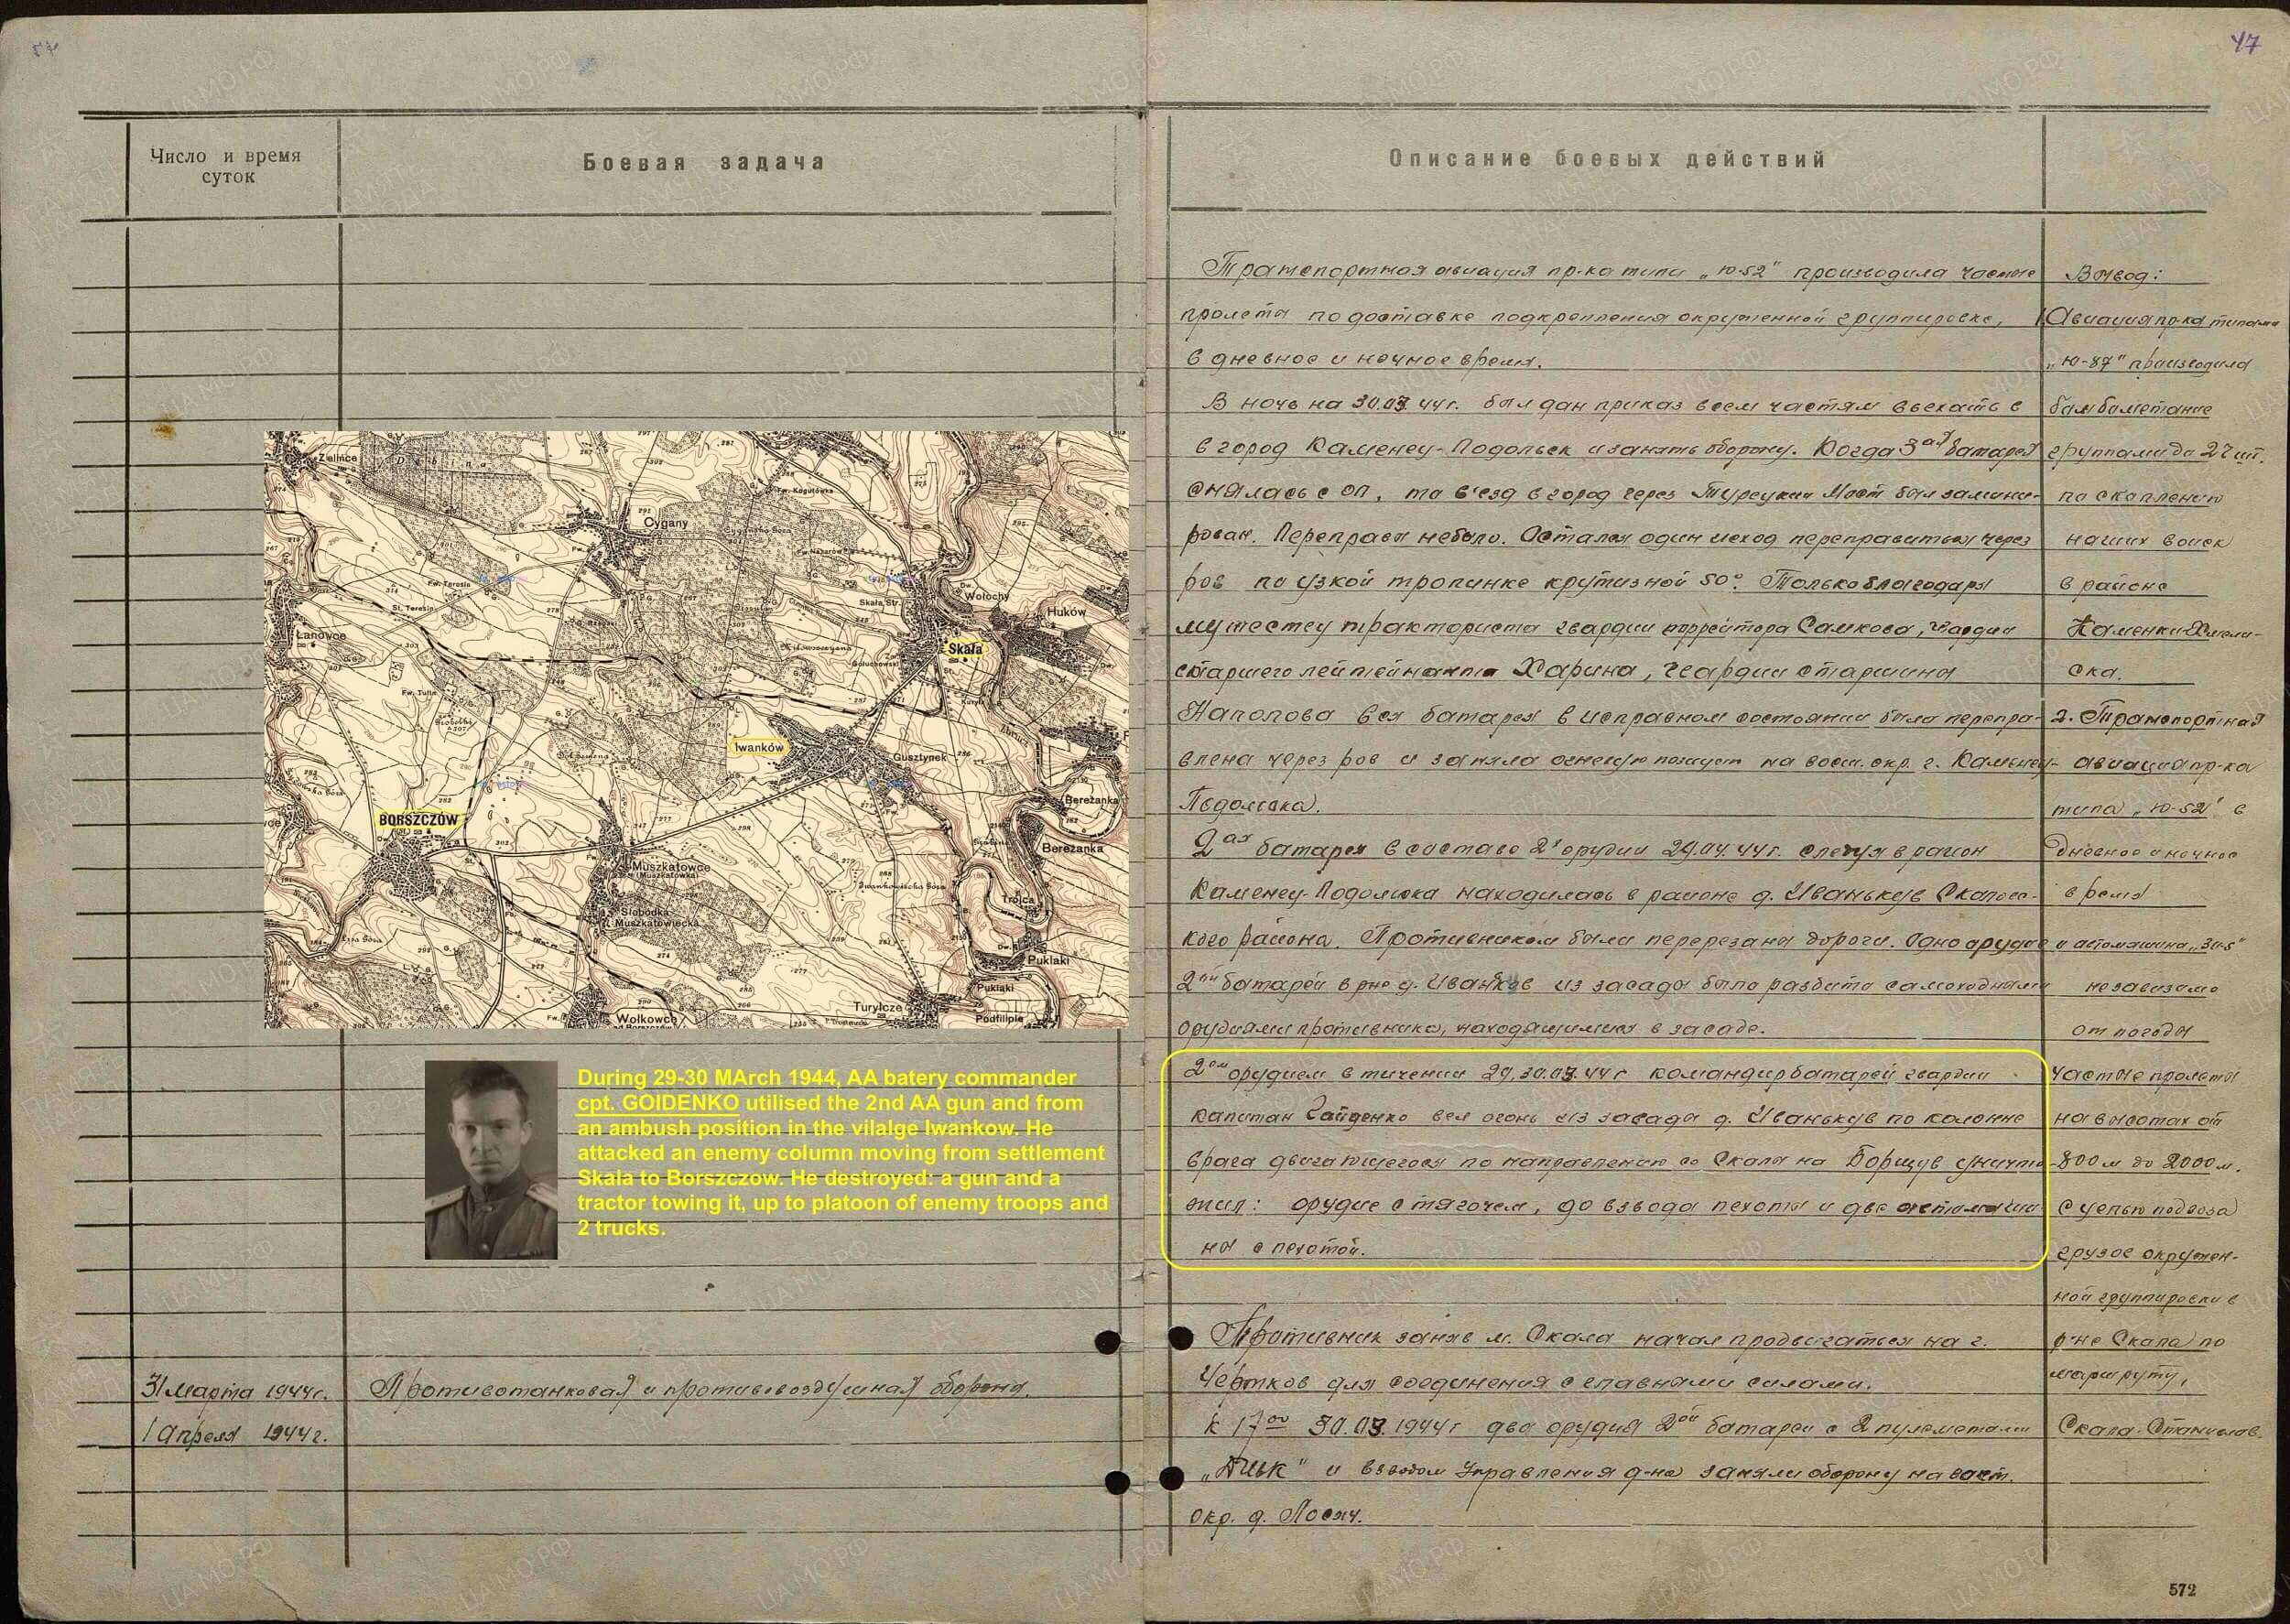 47
Число и время
суток
Боевая задача
Описание боевых действий
Транспортная авиация пр-ка типа „Ю-52" производила частые
пролеты по доставке подкрепления окруженной группировке,
в дневное и ночное время.
В ночь на 30.03.44г. был дан приказ всем частям въехать в
в город Каменец-Подольск и занять оборону. Когда 3ая батарея
снялась с оп, то в'езд в город через Турецкий Мост был замини-
рован. Переправы небыло. Остался один исход переправиться через
ров по узкой тропинке крутизной 50°. Только благодаря
мужеству тракториста гвардии ефрейтора Самкова, гвардии
старшего лейтейнанта Харина, гвардии старшина
Наполова вся батарея в исправном состоянии была перепра-
влена через ров и заняла огневую позицию на вост. окр. г. Каменец-
Подольска.
2ая батарея в составе 2х орудий 29.04.44г. следуя в район
Каменец-Подольска находилась в районе д. Иванькув Скалос-
кого района. Противником были перерезаны дороги. Одно орудие
2ой батареи в рне д. Иванкув из засады было разбито самоходными
орудиями противника, находящимися в засаде.
2ом орудием в течении 29,30.03.44г командир батарей гвардии
капитан Гайденко вел огонь из засады д. Иванькув по колонне
врага двигающегося по направлению со Скалы на Борщув уничто-
жил: орудие с тягочем, до взвода пехоты и две автомаши
ны с пехотой.
Противник заняв м. Скала начал продвигаться на г.
Чертков для соединения с главными силами.
К 17оо 30.03.1944г два орудия 2ой батареи с 2 пулеметами
„ДШК" и взводом Управления д-на заняли оборону на вост.
окр. д. Лосяч.
Вывод:
1. Авиация пр-ка типами
„Ю-87" производила
бомбометание
группами до 27 шт.
по скаплению
наших войск
в районе
Каменки-
ска.
2. Транспортная
авиация пр-ка
типа „Ю-52" в
дневное и ночное
время
независимо
от погоды
частые пролеты
на высотах от
800м до 2000м.
с целью подвоза
грузов окружен-
ной группировки в
р-не Скала по
маршруту,
Скала-Станислав.
31 марта 1944г.
1 апреля 1944г.
Противотанковая и противовоздушная оборона.
Zielince
Dębina
Cygany
Fw. Kogutówka
Fw. Teresin
St. Teresin
Łanowce
Fw. Tulin
Skała Str.
Wołochy
Huków
Skała
Iwanków
Gusztynek
BORSZCZÓW
Muszkatowce
(Muszkatówka)
Słobódka
Muszkatowiecka
Iwankowiecka Góra
Bereżanka
Bereżanka
Trójca
Puklaki
Puklaki
Turylcze
Podfilipie
Wołkowce
During 29-30 MArch 1944, AA batery commander
cpt. GOIDENKO utilised the 2nd AA gun and from
an ambush position in the vilalge Iwankow. He
attacked an enemy column moving from settlement
Skala to Borszczow. He destroyed: a gun and a
tractor towing it, up to platoon of enemy troops and
2 trucks.
572
ЦАМО.РФ
ПАМЯТЬ НАРОДА